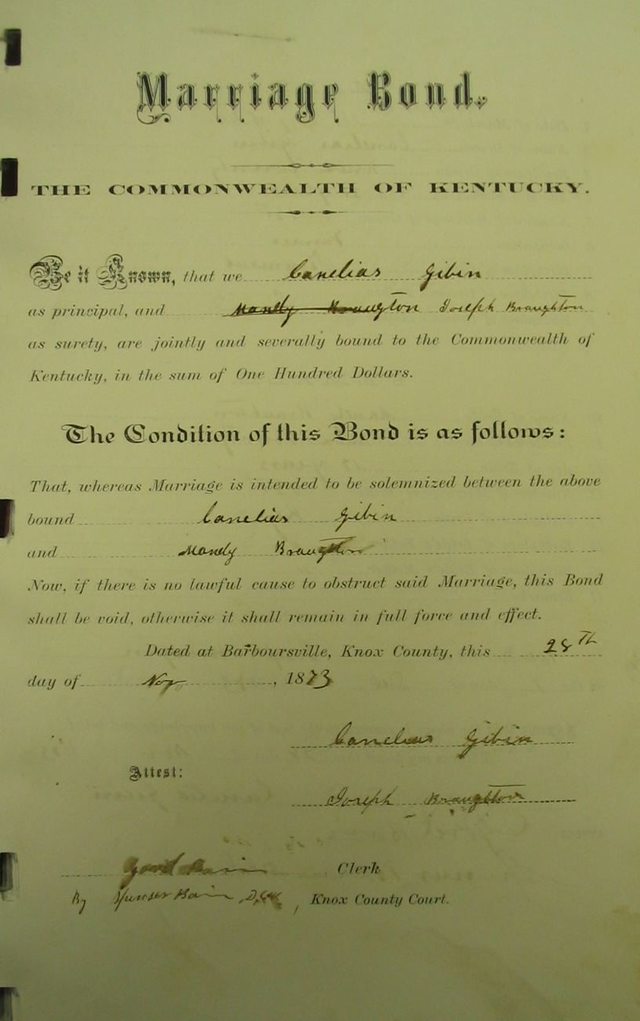 Marriage Bond.
THE COMMONWEALTH OF KENTUCKY.
Be it Known, that we Canelias Gibin
as principal, and Mandy Braugton Joseph Braughton
as surety, are jointly and severally bound to the Commonwealth of
Kentucky, in the sum of One Hundred Dollars.
The Condition of this Bond is as follows:
That, whereas Marriage is intended to be solemnized between the above
bound Canelias Gibin
and Mandy Braugton
Now, if there is no lawful cause to obstruct said Marriage, this Bond
shall be void, otherwise it shall remain in full force and effect.
Dated at Barboursville, Knox County, this 28th
day of Nov, 1873
Canelias Gibin
Attest:
Joseph Braughton
Clerk
By Spenser D.C.
Knox County Court.